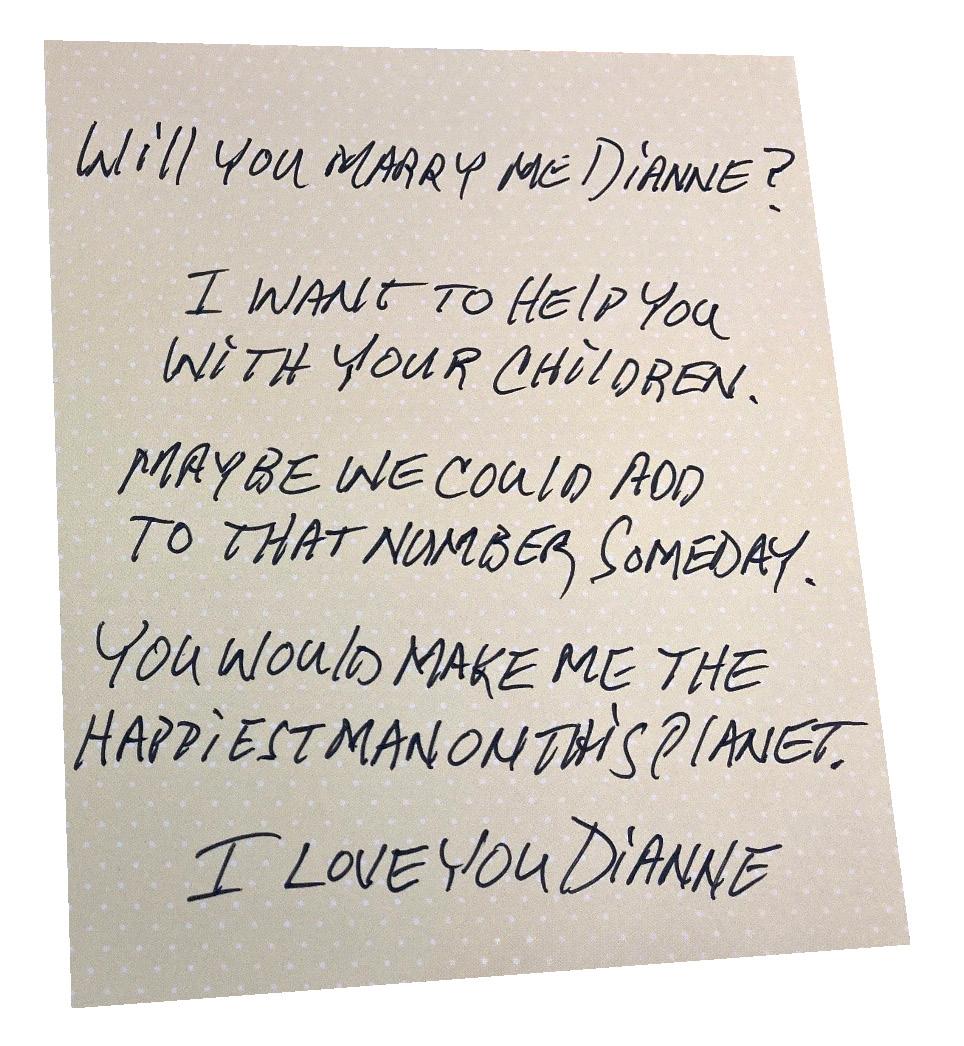 Will you MARRY ME DiANNE?
I WANt TO HElP YOU
WiTH YOUR CHilDREN.
MAYBE WE COUlD ADD
TO THAT NUMBER SOMEDAY.
YOU WOUlD MAKE ME THE
HAPPiEST MAN ON THiS PlANET.
I LOVE YOU DiANNE